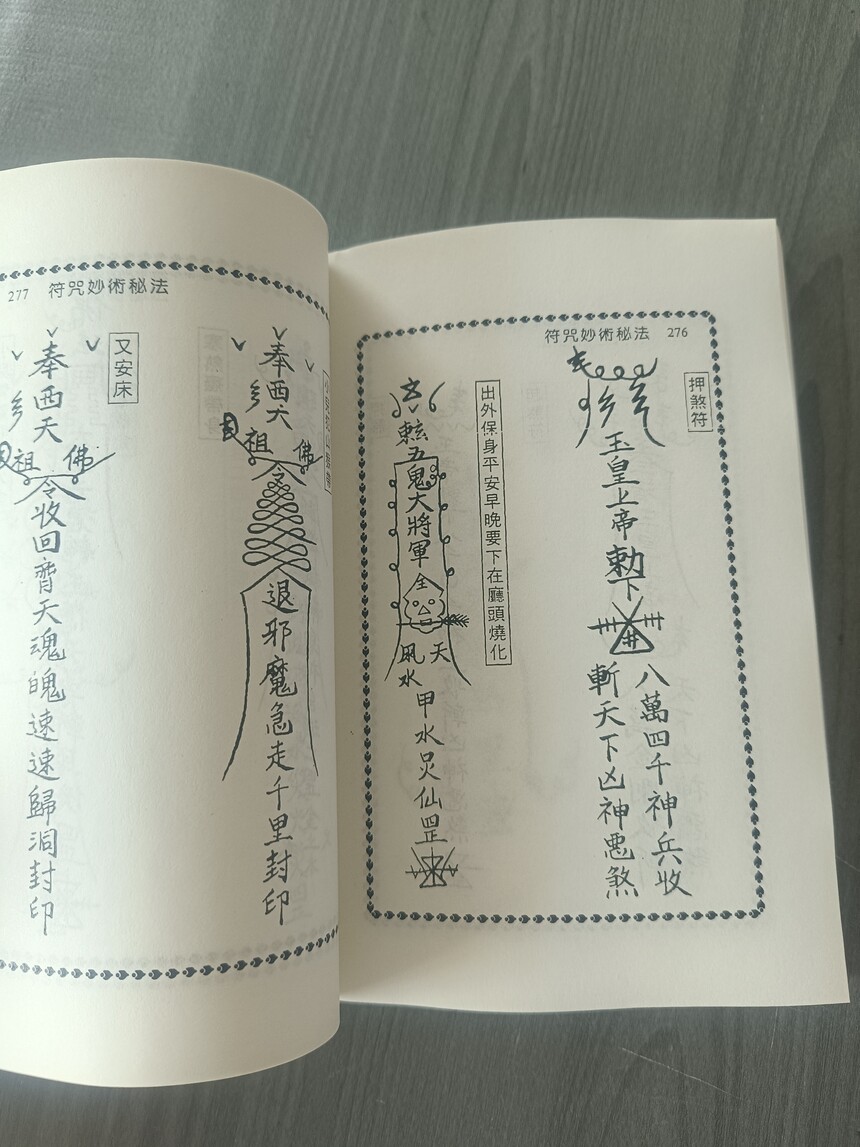 符咒妙術秘法 276
押煞符
玉皇上帝勅下
八萬四千神兵收
斬天下凶神惡煞
出外保身平安早晚要下在廳頭燒化
五鬼大將軍
天
風水
甲水炅仙罡
277 符咒妙術秘法
奉西天
佛祖
令
退邪魔急走千里封印
又安床
奉西天
佛祖
令收回齊天魂魄速速歸洞封印